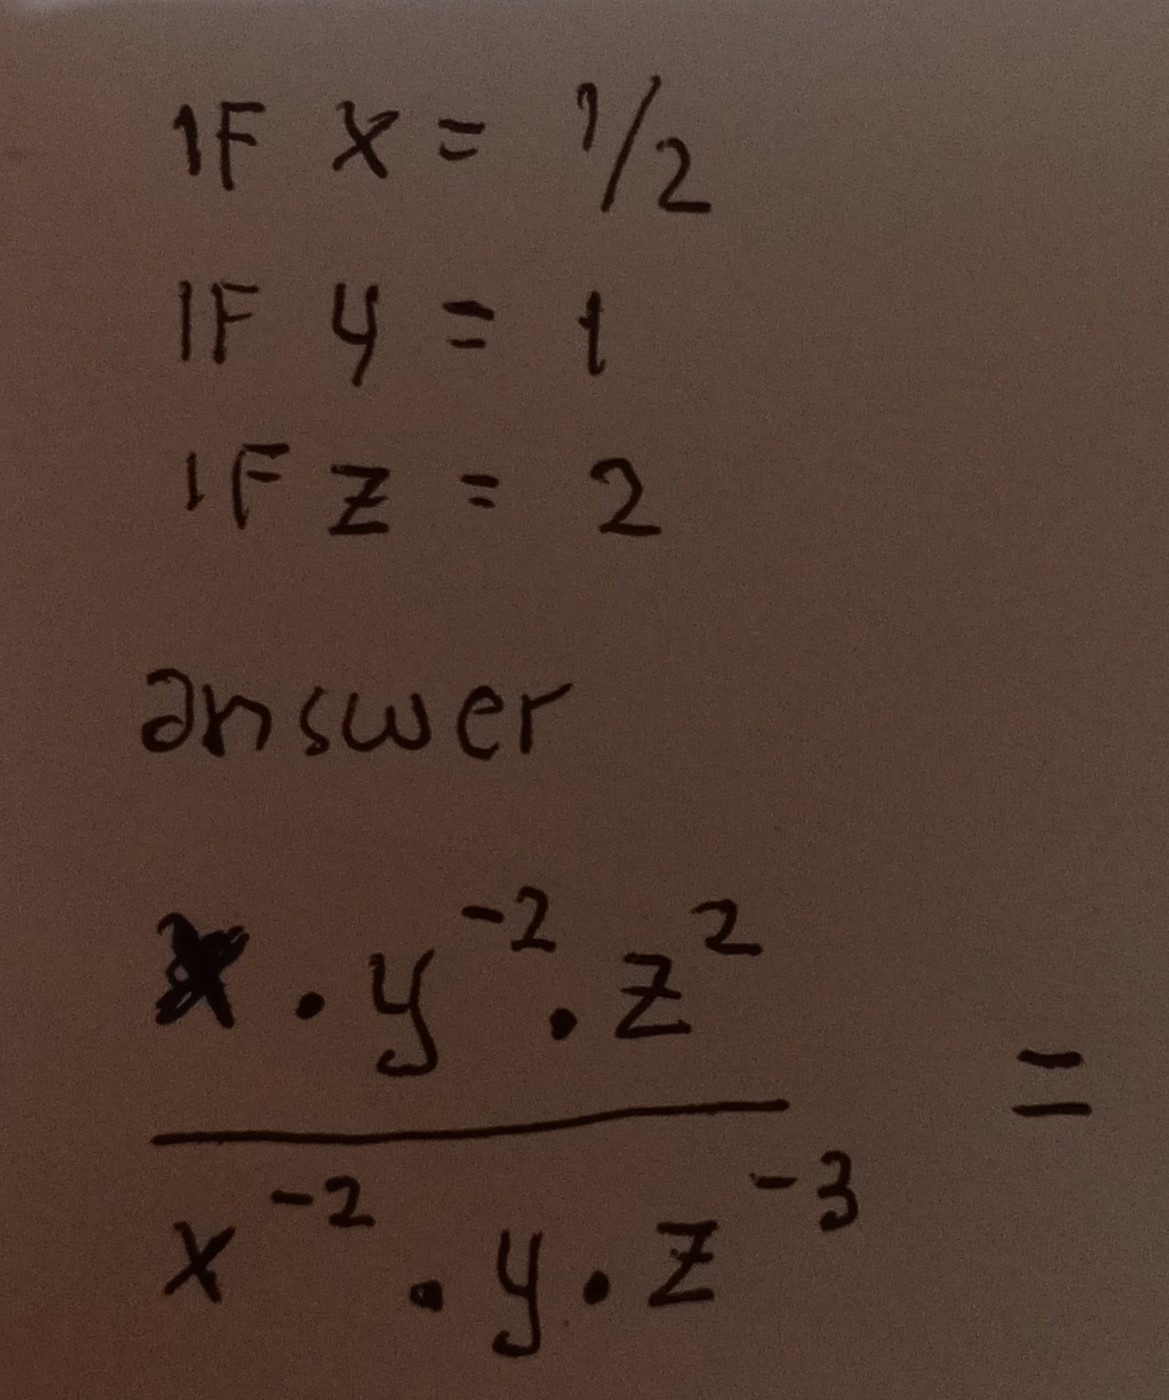 IF x = 1/2
IF y = 1
IF z = 2
answer
x · y⁻² · z²
x⁻² · y · z⁻³ =